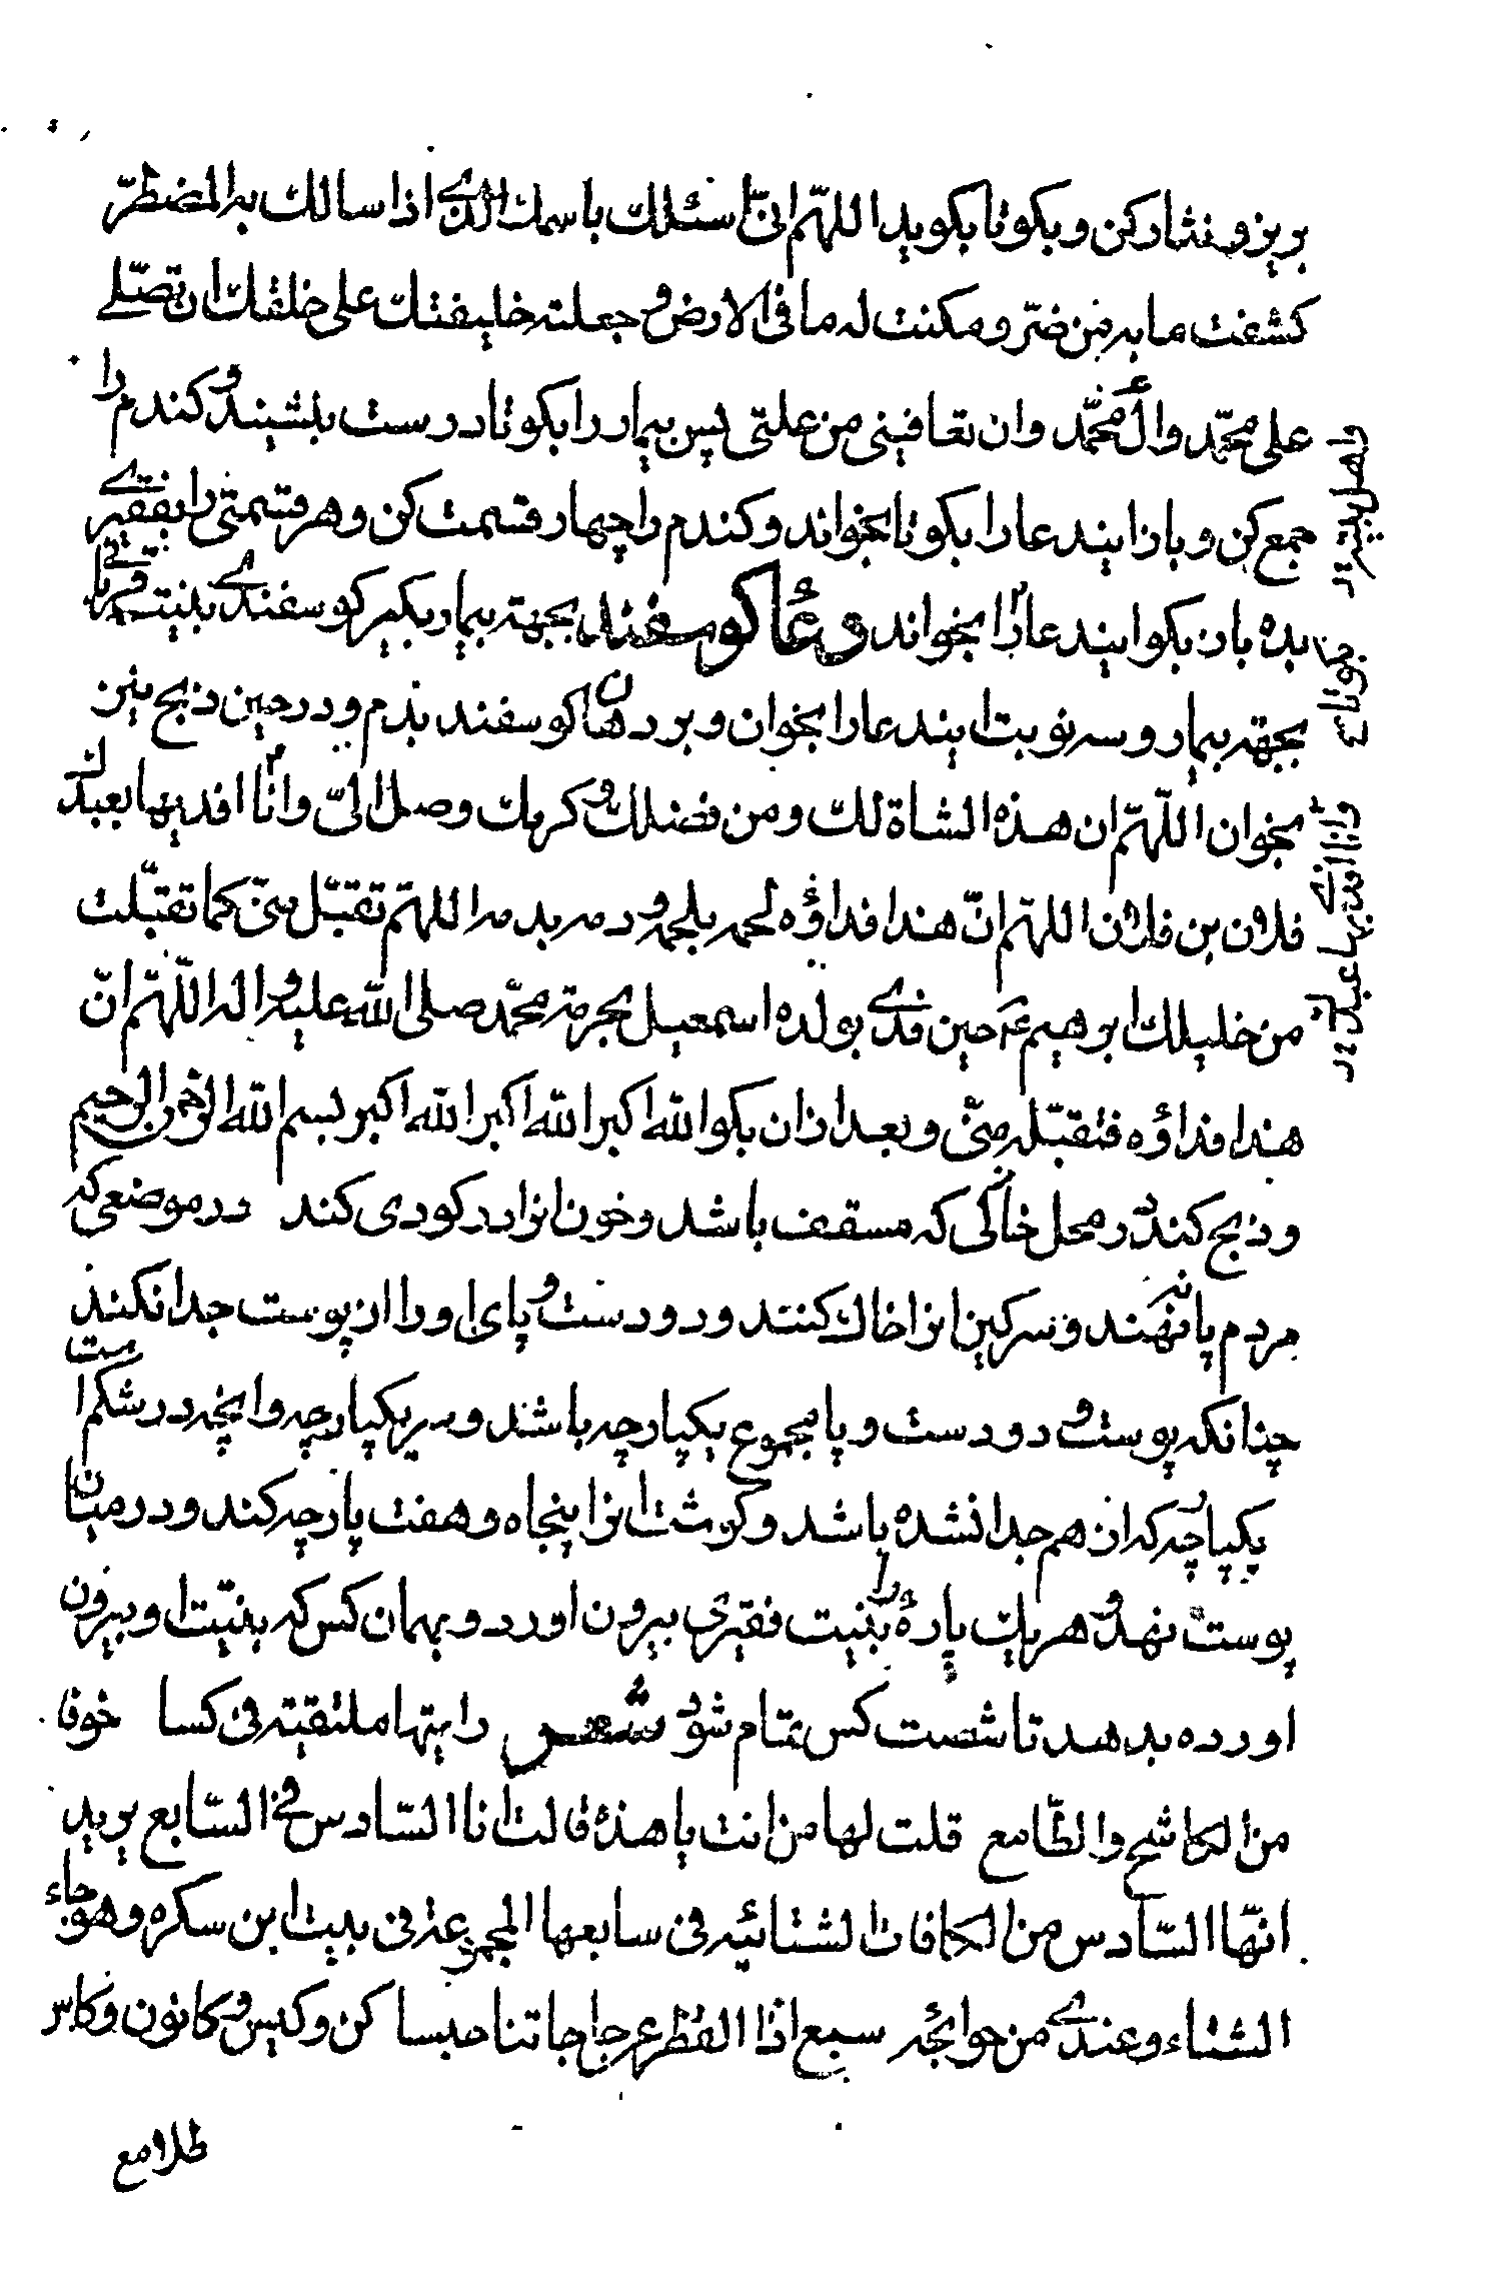 بریز و نثار کن و بکو تا بکوید اللهمّ انّی اسئلك باسمك الذی اذا سالك به المضطرّ
کشفت ما به من ضرّ و مکنت له ما فی الارض و جعلته خلیفتك علی خلقك ان تصلّے
علی محمّد و ال محمّد و ان تعافینی من علتی پس بیمار را بکو تا درست بنشیند و کندم را
جمع کن و باز ایندعا را بکو تا بخواند و کندم را چهار قسمت کن و هر قسمتی را بفقیرے
بده باز بکو ایندعا را بخواند دعا کوسفند بجهته بیمار بکیر کوسفندے بنیت قربانی
بجهته بیمار و سه نوبت ایندعا را بخوان و بر دهان کوسفند بدم و در حین ذبح نیز
بخوان اللّهمّ ان هذه الشاة لك و من فضلك و کرمك وصل الیّ و انا افدیها بعبدك
فلان بن فلان اللهمّ انّ هذا فداؤه لحمه بلحمه و دمه بدمه اللهمّ تقبّل منّی کما تقبّلت
من خلیلك ابرهیم حین فدی بولده اسمعیل بحرمة محمّد صلی اللّه علیه و اله اللّهمّ انّ
هذا فداؤه فتقبّله منّی و بعد از ان بکو اللّه اکبر اللّه اکبر اللّه اکبر بسم اللّه الرحمن الرحیم
و ذبح کند در محل خاکی که مسقف باشد و خون انرا در کودی کند در موضعی که
مردم پا ننهند و سرکین انرا خاك کنند و دو دست و پای او را از پوست جدا نکنند
چنانکه پوست و دو دست و پا بمجموع یکپارچه باشند و سر یکپارچه و انچه در شکم است
یکپارچه که از هم جدا نشده باشد و کوشت انرا پنجاه و هفت پارچه کند و در میان
پوست نهد و هر یك پاره را بنیت فقیری بیرون اورد و بهمان کس که بنیّت او بیرون
اورده بدهد تا شصت کس تمام شود شعر رایتها ملتقیة فی کسا خوفا
من الکاشح و الطّامع قلت لها من انت یا هذه قالت انا السّادس فی السّابع یرید
انّها السّادس من الکافات الشتائیه فی سابعها المجموعة فی بیت ابن سکره و هو جاء
الشتاء و عندے من حوائجه سبع اذا القطر عن حاجاتنا حبسا کن و کیس و کانون و کاس
طلا مع
و انا افدیها عبدك